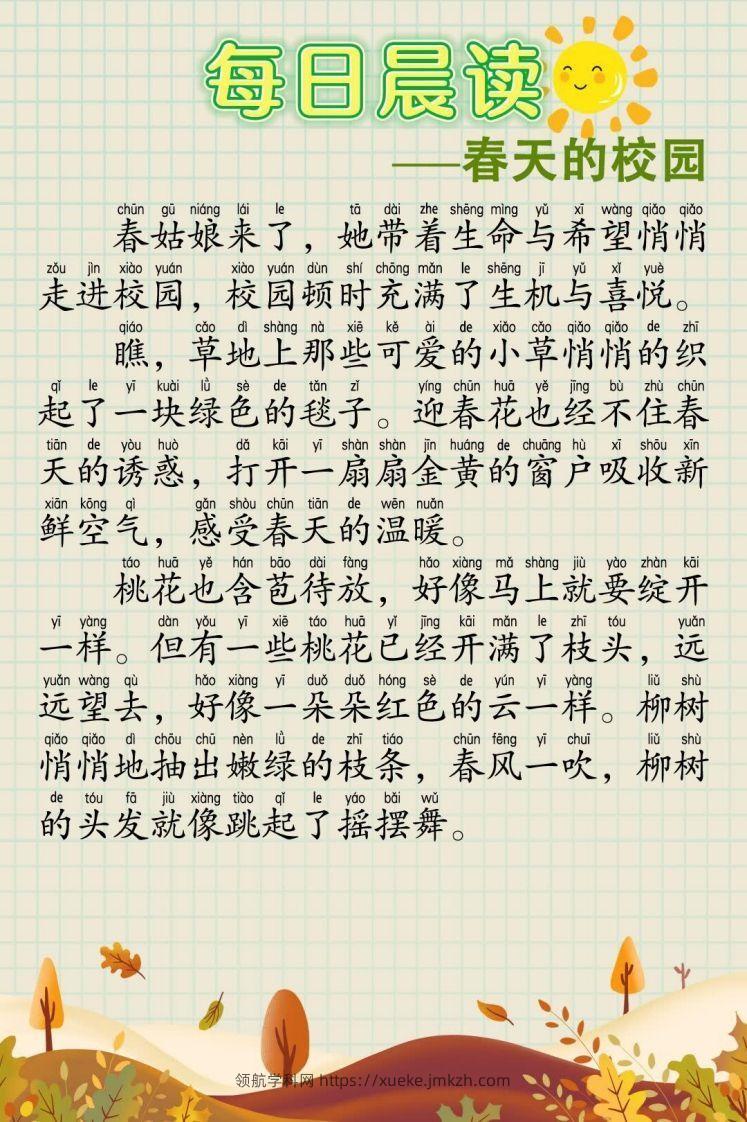 每日晨读
——春天的校园
chūn gū niáng lái le tā dài zhe shēng mìng yǔ xī wàng qiǎo qiǎo
春姑娘来了，她带着生命与希望悄悄
zǒu jìn xiào yuán xiào yuán dùn shí chōng mǎn le shēng jī yǔ xǐ yuè
走进校园，校园顿时充满了生机与喜悦。
qiáo cǎo dì shàng nà xiē kě ài de xiǎo cǎo qiǎo qiǎo de zhī
瞧，草地上那些可爱的小草悄悄的织
qǐ le yī kuài lǜ sè de tǎn zǐ yíng chūn huā yě jīng bù zhù chūn
起了一块绿色的毯子。迎春花也经不住春
tiān de yòu huò dǎ kāi yī shàn shàn jīn huáng de chuāng hù xī shōu xīn
天的诱惑，打开一扇扇金黄的窗户吸收新
xiān kōng qì gǎn shòu chūn tiān de wēn nuǎn
鲜空气，感受春天的温暖。
táo huā yě hán bāo dài fàng hǎo xiàng mǎ shàng jiù yào zhàn kāi
桃花也含苞待放，好像马上就要绽开
yī yàng dàn yǒu yī xiē táo huā yǐ jīng kāi mǎn le zhī tóu yuǎn
一样。但有一些桃花已经开满了枝头，远
yuǎn wàng qù hǎo xiàng yī duǒ duǒ hóng sè de yún yī yàng liǔ shù
远望去，好像一朵朵红色的云一样。柳树
qiǎo qiǎo dì chōu chū nèn lǜ de zhī tiáo chūn fēng yī chuī liǔ shù
悄悄地抽出嫩绿的枝条，春风一吹，柳树
de tóu fā jiù xiàng tiào qǐ le yáo bǎi wǔ
的头发就像跳起了摇摆舞。
领航学科网 https://xueke.jmkzh.com